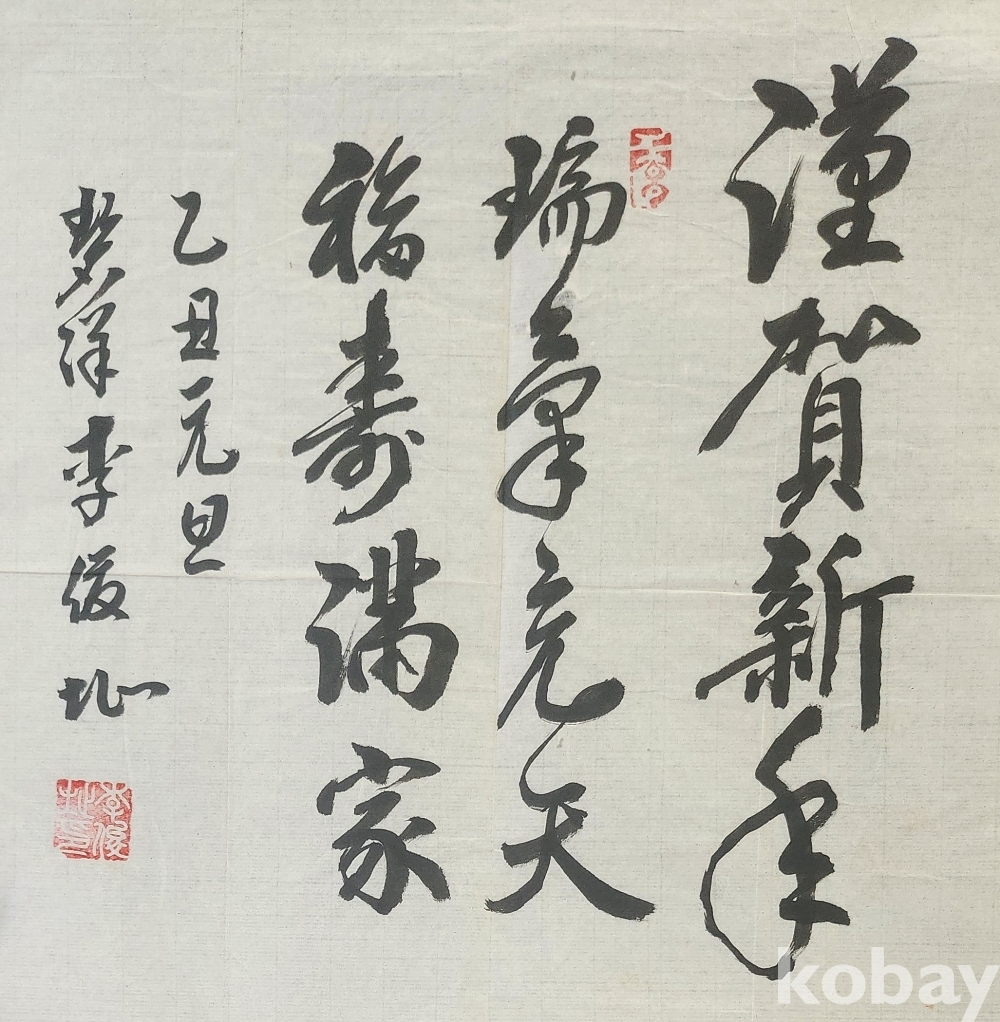 謹賀新年
瑞氣充天
福壽滿家
乙丑元旦
碧洋李俊址
李俊址印
kobay